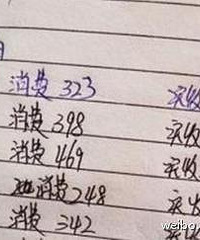 消费 323 实收
消费 398 实收
消费 469 实收
消费 248 实收
消费 342 实收
weibo